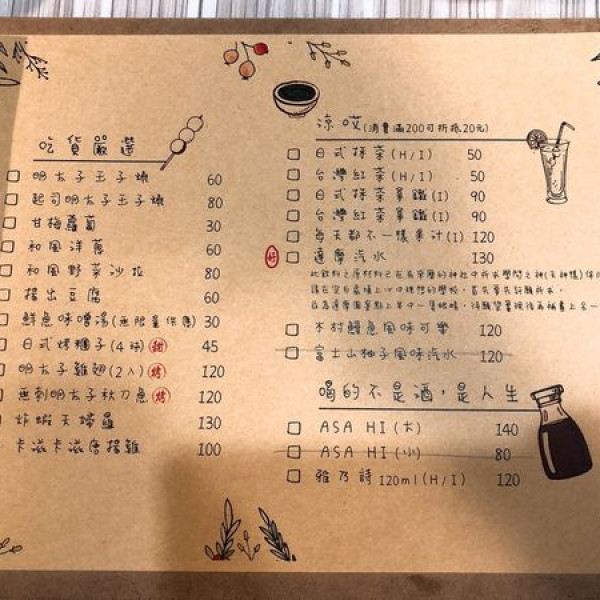 吃貨嚴選
明太子玉子燒 60
起司明太子玉子燒 80
甘梅蘿蔔 30
和風洋蔥 60
和風野菜沙拉 80
揚出豆腐 60
鮮魚味噌湯(無限量供應) 30
日式烤糰子(4球) 甜 45
明太子雞翅(2入) 烤 120
無刺明太子秋刀魚 烤 120
炸蝦天婦羅 130
卡滋卡滋唐揚雞 100
涼哎(消費滿200可折抵20元)
日式抹茶(H/I) 50
台灣紅茶(H/I) 50
日式抹茶拿鐵(I) 90
台灣紅茶拿鐵(I) 90
每天都不一樣果汁(I) 120
達摩汽水 130
木村鰻魚風味可樂 120
富士山柚子風味汽水 120
喝的不是酒，是人生
ASA HI(大) 140
ASA HI(小) 80
雅乃詩120ml(H/I) 120